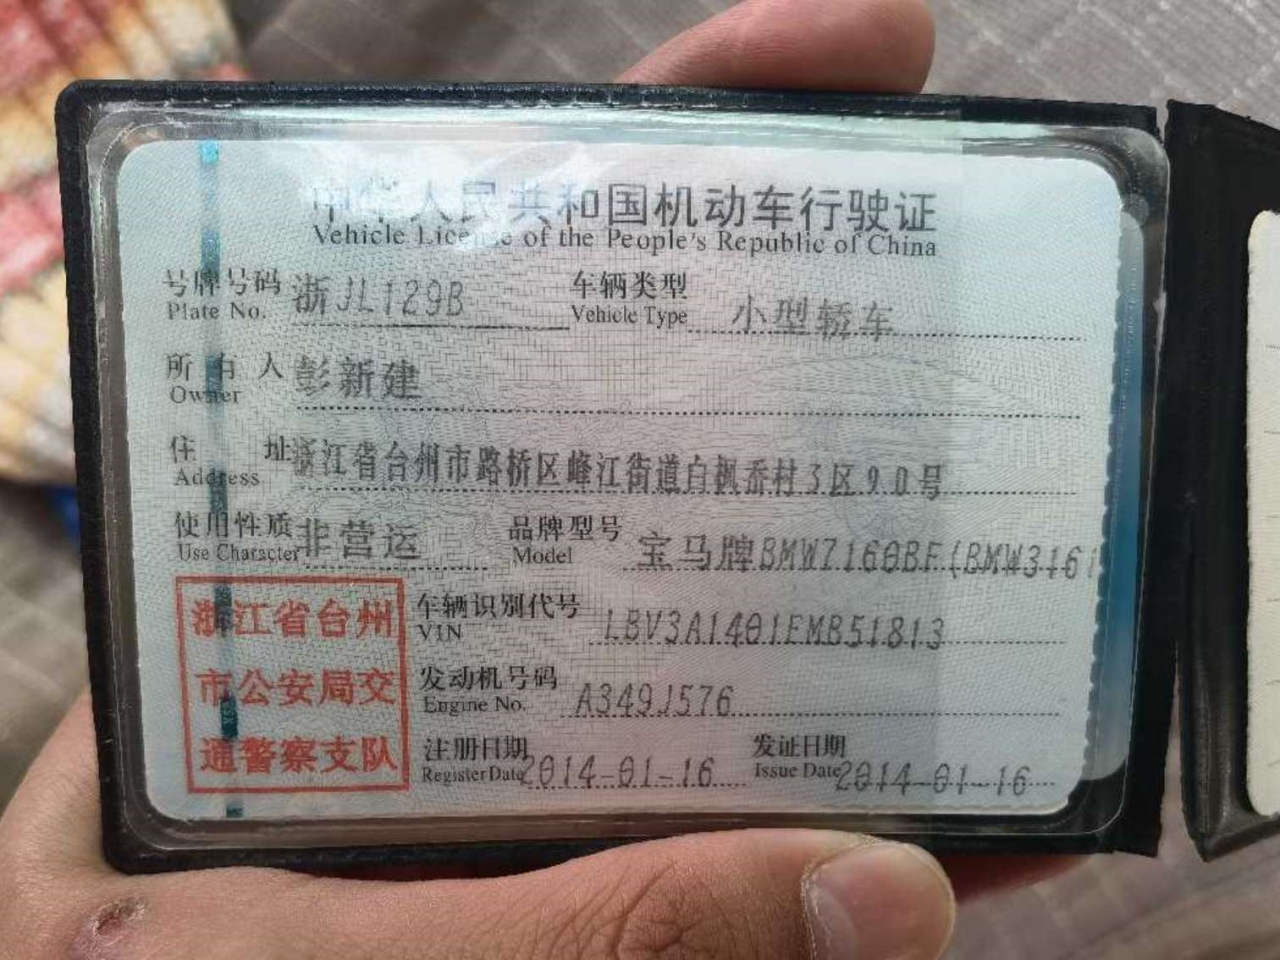 中华人民共和国机动车行驶证
Vehicle License of the People's Republic of China
号牌号码 浙JL129B 车辆类型 小型轿车
Plate No. Vehicle Type
所有人 彭新建
Owner
住址 浙江省台州市路桥区峰江街道白枫岙村3区90号
Address
使用性质 非营运 品牌型号 宝马牌BMW7160BF(BMW316i
Use Character Model
浙江省台州
市公安局交
通警察支队
车辆识别代号 LBV3A1401EMB51813
VIN
发动机号码 A349J576
Engine No.
注册日期 2014-01-16 发证日期 2014-01-16
Register Date Issue Date